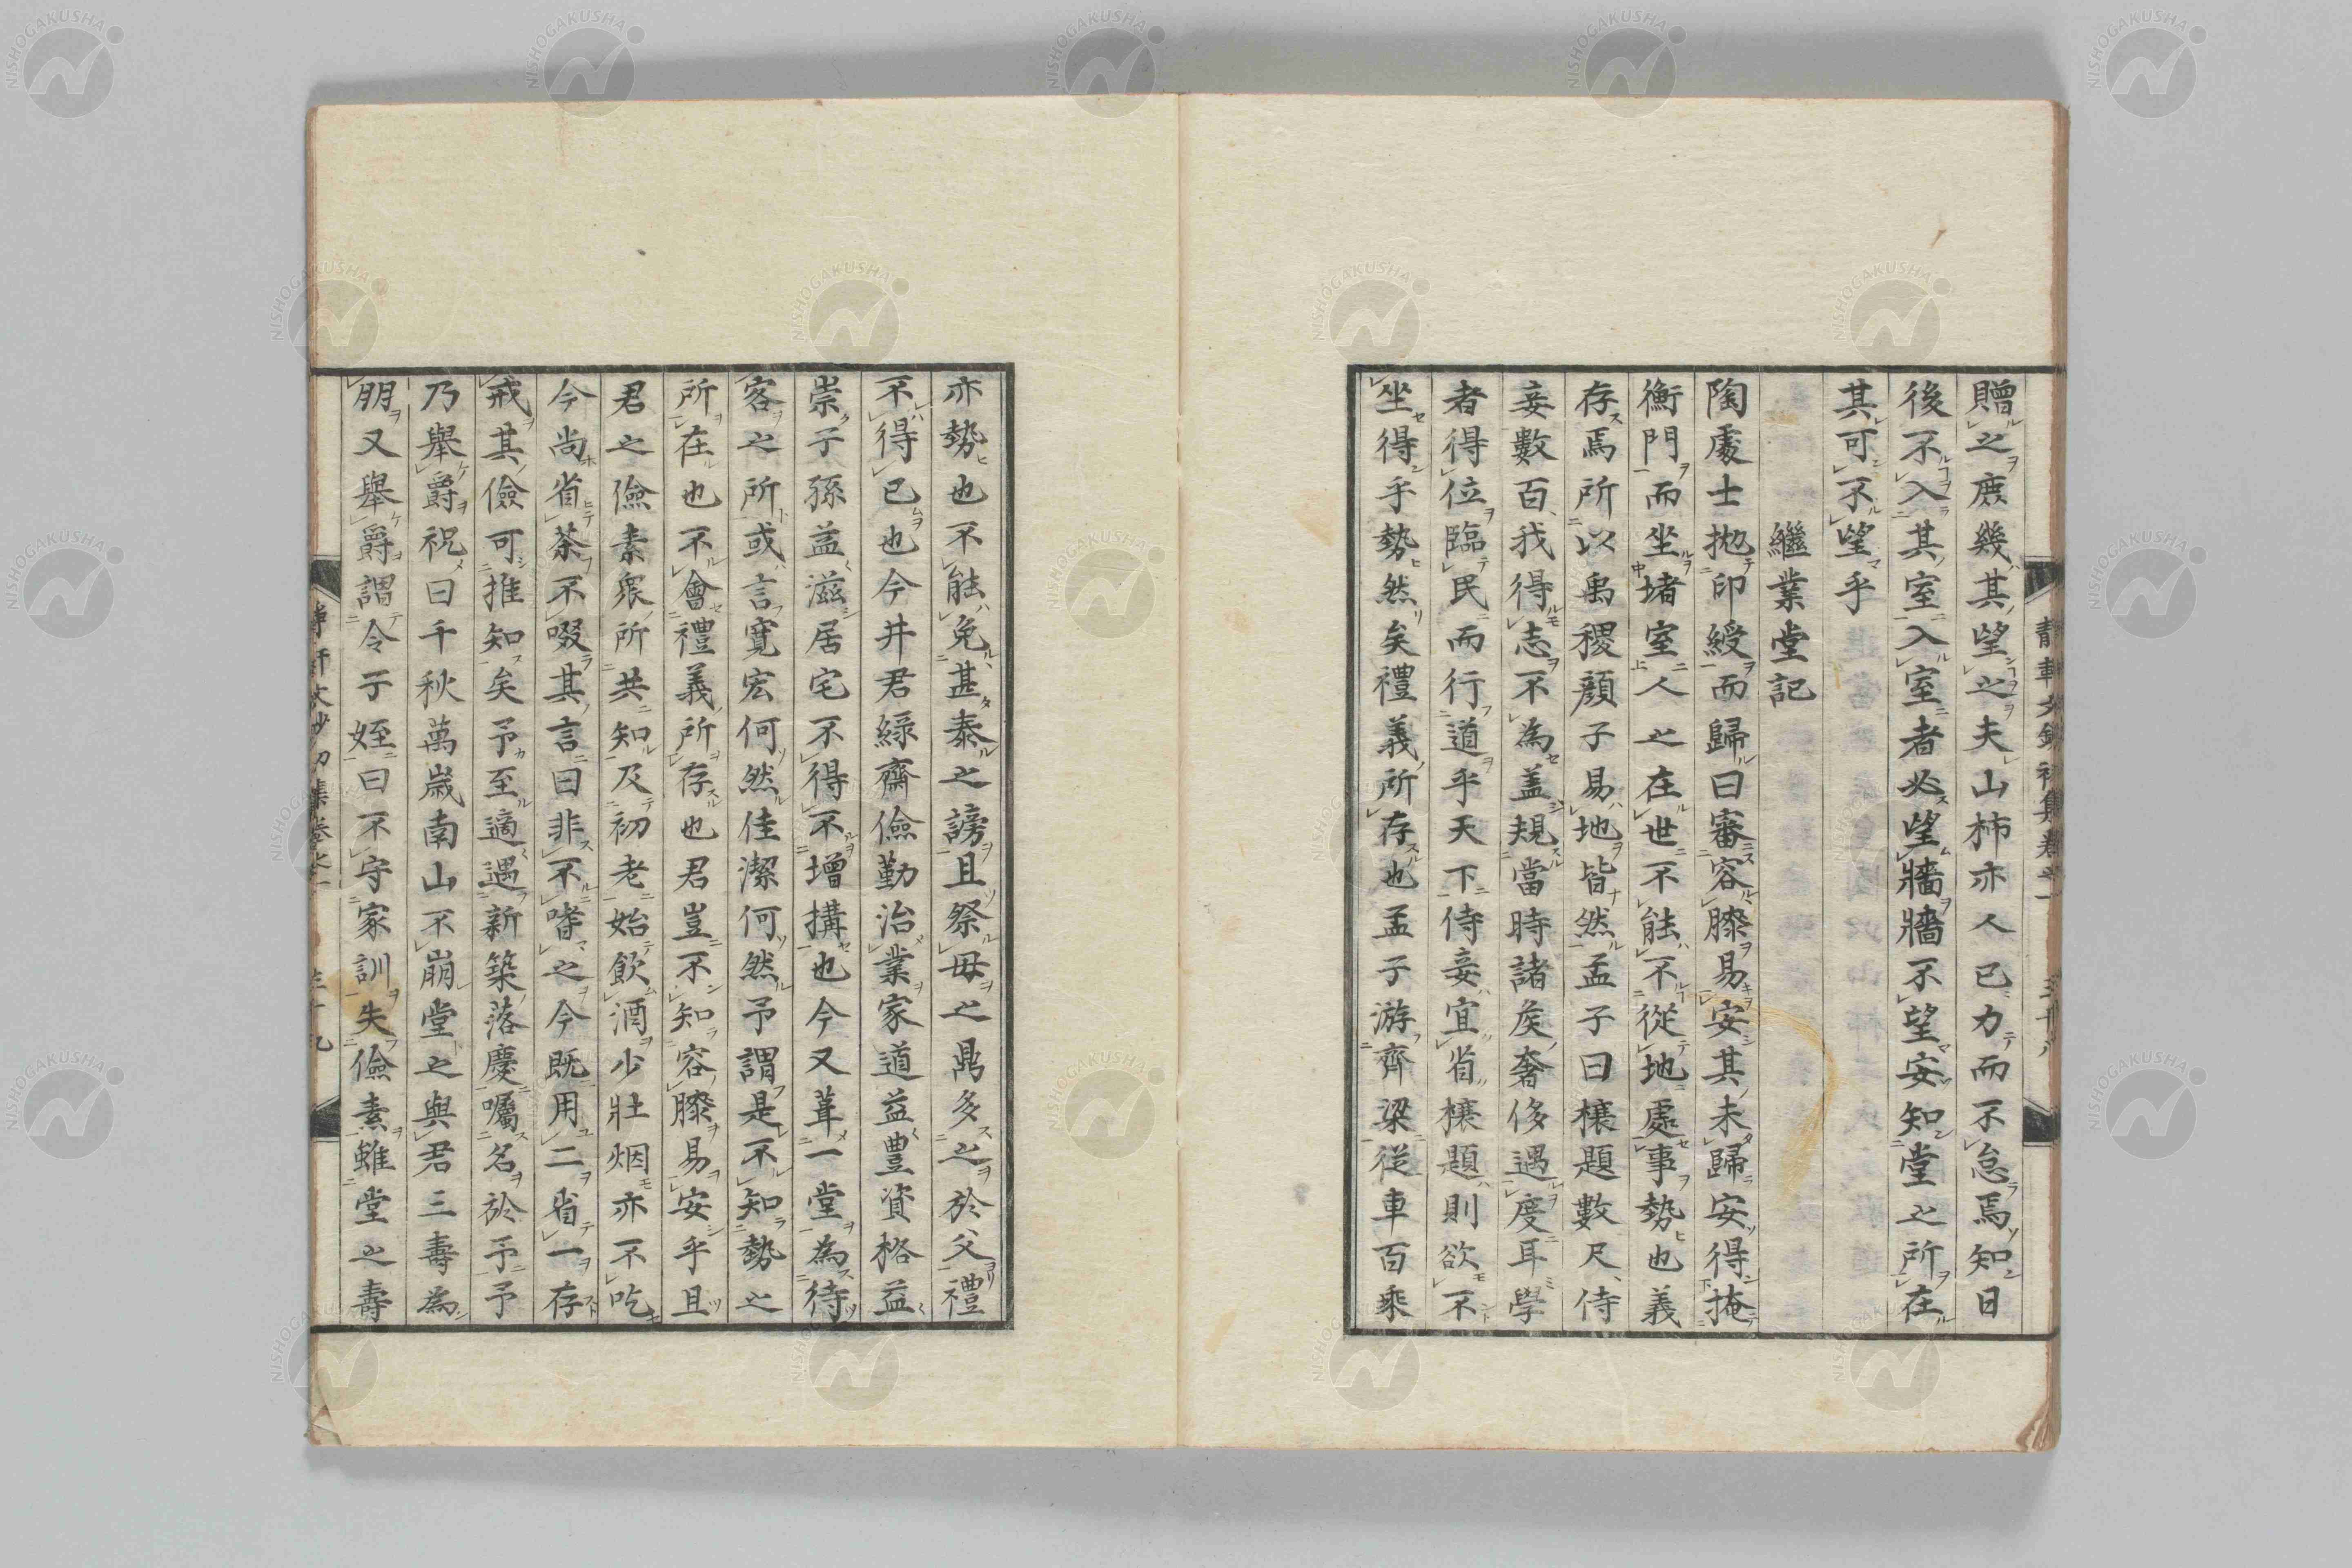 贈之庶幾其望之夫山柿亦人已力而不怠焉知日
後不入其室入室者必望牆牆不望安知堂之所在
其可不望乎
繼業堂記
陶處士抛印綬而歸曰審容膝易安其未歸安得掩
衡門而坐堵室人之在世不能不從地處事勢也義
存焉所以禹稷顏子易地皆然孟子曰榱題數尺侍
妾數百我得志不為盖規當時諸矦奢侈過度耳學
者得位臨民而行道乎天下侍妾宜省榱題則欲不
坐得乎勢然矣禮義所存也孟子游齊梁從車百乘
亦勢也不能免甚泰之謗且祭母之鼎多之於父禮
不得已也今井君綠齋儉勤治業家道益豊資格益
崇子孫益滋居宅不得不增搆也今又葺一堂為待
客之所或言寬宏何然佳潔何然予謂是不知勢之
所在也不會禮義所存也君豈不知容膝易安乎且
君之儉素衆所共知及初老始飲酒少壯烟亦不吃
今尚省茶不啜其言曰非不嗜之今既用二省一存
戒其儉可推知矣予至適遇新築落慶囑名於予予
乃舉爵祝曰千秋萬歲南山不崩堂之與君三壽為
朋又舉爵謂令子姪曰不守家訓失儉素雖堂之壽
NISHOGAKUSHA